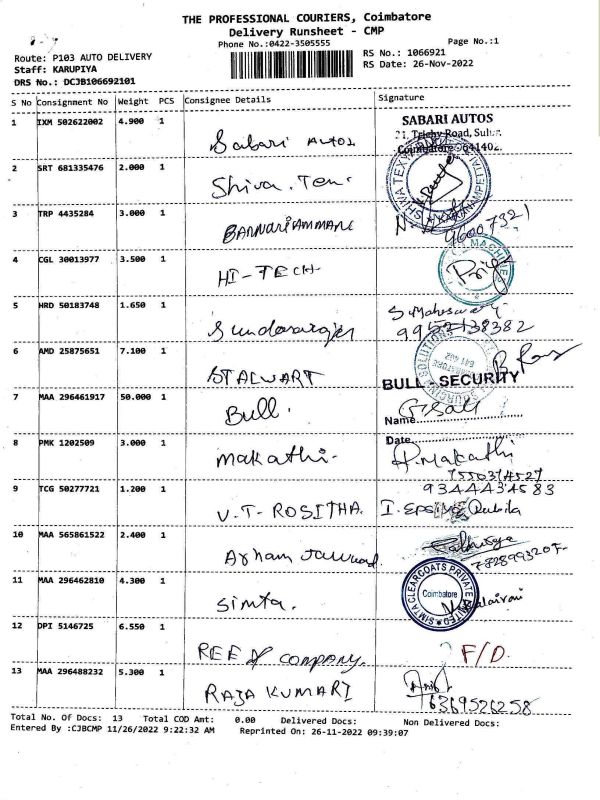 THE PROFESSIONAL COURIERS, Coimbatore
Delivery Runsheet - CMP
Phone No.:0422-3505555
Page No.:1
Route: P103 AUTO DELIVERY
RS No.: 1066921
Staff: KARUPIYA
RS Date: 26-Nov-2022
DRS No.: DCJB106692101
S No Consignment No Weight PCS Consignee Details Signature
1 IXM 502622002 4.900 1 Sabari Autos SABARI AUTOS
21, Trichy Road, Sulur,
Coimbatore - 641402.
2 SRT 681335476 2.000 1 Shiva. Tex.
3 TRP 4435284 3.000 1 BANNARIAMMAN
96007321
4 CGL 30013977 3.500 1 HI-TECH
5 HRD 50183748 1.650 1 Sundararajan S. Maheswari
9952138382
6 AMD 25875651 7.100 1 STALWART
BULL - SECURITY
7 MAA 296461917 50.000 1 Bull.
Name
Date
8 PMK 1202509 3.000 1 Makathi- P. Makathi
7550374527
9 TCG 50277721 1.200 1 V.T- ROSITHA
9344434583
10 MAA 565861522 2.400 1 Arham
11 MAA 296462810 4.300 1 Simta.
SIMTA CLEARCOATS PRIVATE LIMITED
Coimbatore
12 DPI 5146725 6.550 1 REE & COMPANY. F/D.
13 MAA 296488232 5.300 1 RAJA KUMARI
6369526258
Total No. Of Docs: 13 Total COD Amt: 0.00 Delivered Docs: Non Delivered Docs:
Entered By :CJBCMP 11/26/2022 9:22:32 AM Reprinted On: 26-11-2022 09:39:07